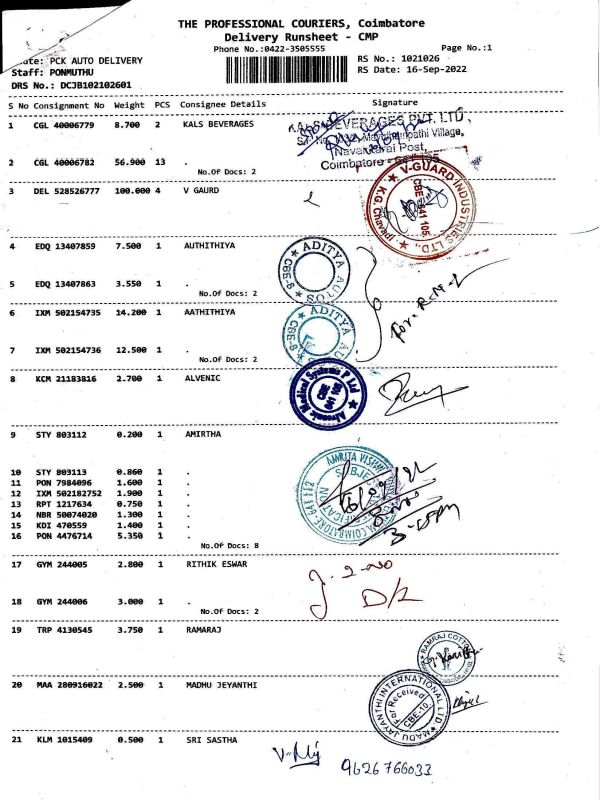 THE PROFESSIONAL COURIERS, Coimbatore
Delivery Runsheet - CMP
Phone No.:0422-3505555
Page No.:1
PCK AUTO DELIVERY
RS No.: 1021026
Staff: PONMUTHU
RS Date: 16-Sep-2022
DRS No.: DCJB102102601
S No Consignee No Weight PCS Consignee Details Signature
1 CGL 40006779 8.700 2 KALS BEVERAGES
KALS BEVERAGES PVT. LTD.,
Village,
Navakkarai Post,
Coimbatore - 641 105
2 CGL 40006782 56.900 13 .
No.Of Docs: 2
3 DEL 528526777 100.000 4 V GAURD
V-GUARD INDUSTRIES LTD.,
K.G.Chavadi
CBE
641 105
4 EDQ 13407859 7.500 1 AUTHITHIYA
ADITYA AUTO
CBE-9
5 EDQ 13407863 3.550 1 .
No.Of Docs: 2
For. R.M.
6 IXM 502154735 14.200 1 AATHITHIYA
ADITYA AUTO
CBE-9
7 IXM 502154736 12.500 1 .
No.Of Docs: 2
8 KCM 21183816 2.700 1 ALVENIC
Alvenic Medical Systems P Ltd
CBE
641 105
9 STY 803112 0.200 1 AMIRTHA
AMRITA VISHWA
SUBJECT
COIMBATORE-641112
10 STY 803113 0.860 1 .
11 PON 7984096 1.600 1 .
12 IXM 502182752 1.900 1 .
13 RPT 1217634 0.750 1 .
14 NBR 50074020 1.300 1 .
15 KDI 470559 1.400 1 .
16 PON 4476714 5.350 1 .
No.Of Docs: 8
17 GYM 244005 2.800 1 RITHIK ESWAR
2-no
D/L
18 GYM 244006 3.000 1 .
No.Of Docs: 2
19 TRP 4130545 3.750 1 RAMARAJ
RAMRAJ COTTON
20 MAA 280916022 2.500 1 MADHU JEYANTHI
MADU JAYANTHI INTERNATIONAL LTD
For Received
CBE-10
21 KLM 1015409 0.500 1 SRI SASTHA
9626766033